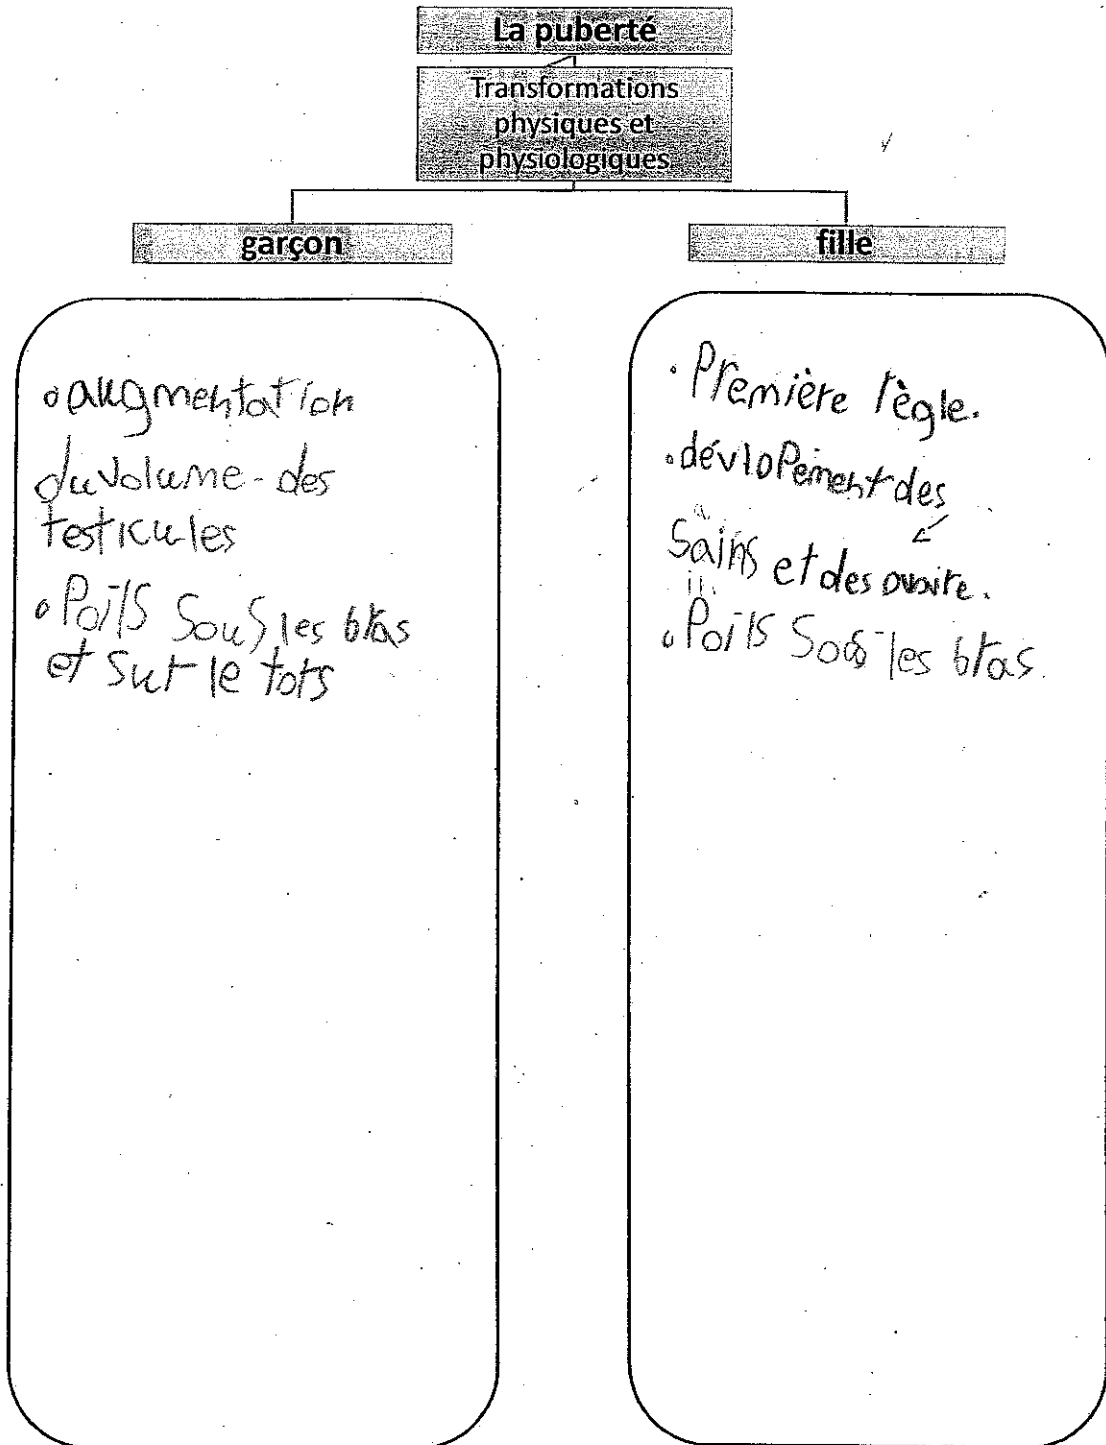 La puberté
Transformations
physiques et
physiologiques
garçon
fille
augmentation
du volume des
testicules
Poils sous les bras
et sur le tors
Première règle.
dévlopement des
Sains et des ovaire.
Poils Sous les bras.